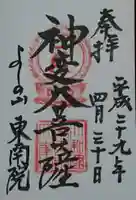 奉拝
平成二十九年
四月三十日
神変大菩薩
よしの山
東南院